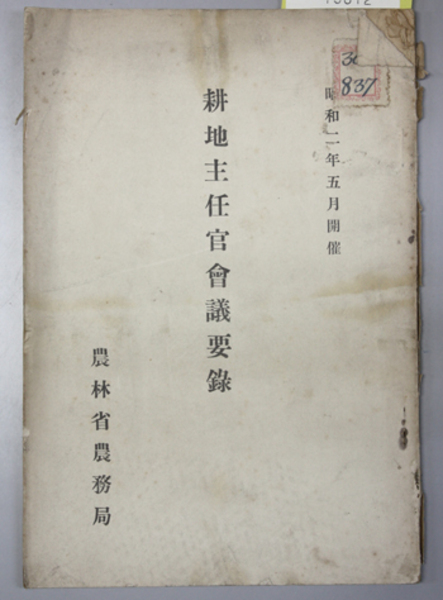 昭和二年五月開催
耕地主任官會議要錄
農林省農務局
837